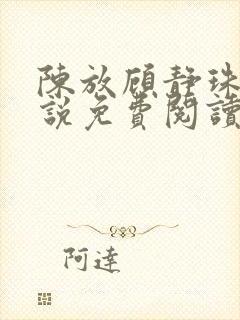 陳放顧靜珠
說免費閱讀
阿達